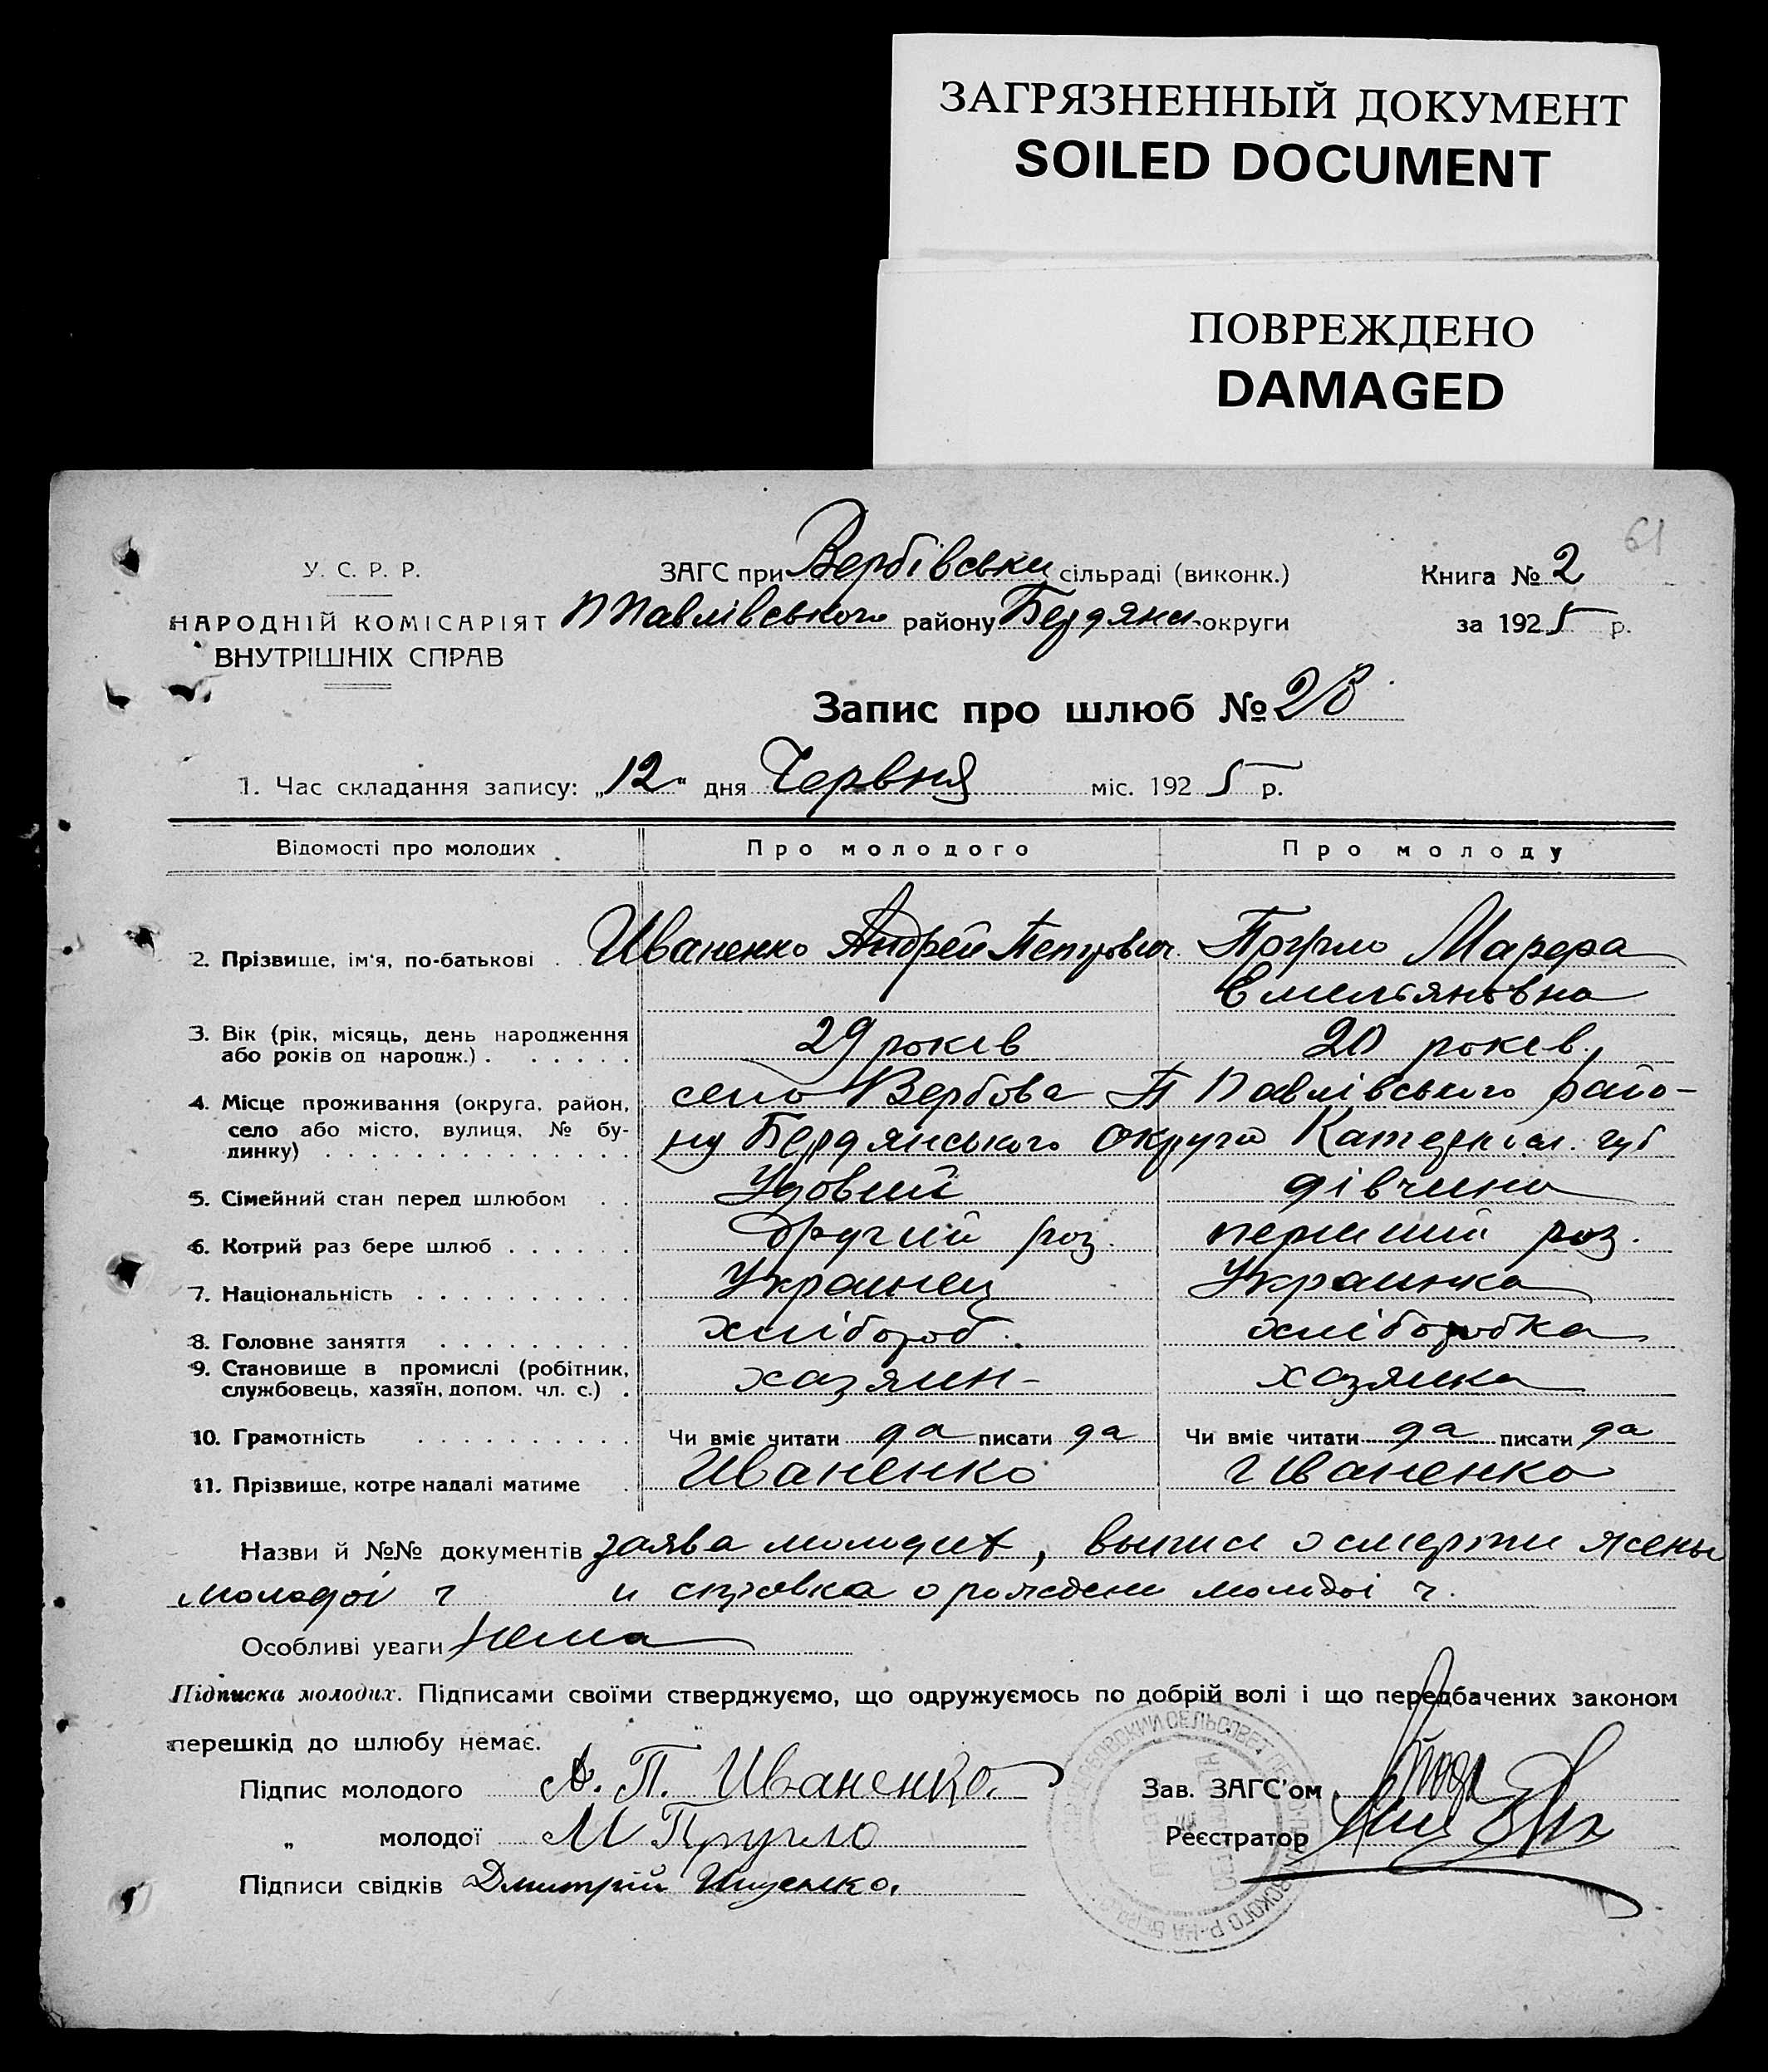 ЗАГРЯЗНЕННЫЙ ДОКУМЕНТ
SOILED DOCUMENT
ПОВРЕЖДЕНО
DAMAGED
61
У. С. Р. Р.
НАРОДНІЙ КОМІСАРІЯТ
ВНУТРІШНІХ СПРАВ
ЗАГС при Вербівськи сільраді (виконк.)
П Павлівського району Бердянс. округи
Книга № 2
за 1925 р.
Запис про шлюб № 28
1. Час складання запису: „12" дня Червня міс. 1925 р.
Відомості про молодих Про молодого Про молоду
2. Прізвище, ім'я, по-батькові . Иваненко Андрей Петрович Марфа
Емельяновна
3. Вік (рік, місяць, день народження
або років од народж.) . 29 років 20 років.
4. Місце проживання (округа, район,
село або місто, вулиця, № бу-
динку) село Вербова П Павлівського райо-
ну Бердянського округа Катериносл. губ
5. Сімейний стан перед шлюбом Удовий дівчина
6. Котрий раз бере шлюб Другий роз. перший роз.
7. Національність Украинец Украинка
8. Головне заняття хлібороб. хліборобка
9. Становище в промислі (робітник,
службовець, хазяїн, допом. чл. с.) . хазяин- хазяика
10. Грамотність Чи вміє читати да писати да Чи вміє читати да писати да
11. Прізвище, котре надалі матиме Иваненко Иваненко
Назви й №№ документів заява молодих, выписи о смерти жены
молодої г и справка о рождени молодої г.
Особливі уваги Нема
Підписка молодих. Підписами своїми стверджуємо, що одружуємось по добрій волі і що передбачених законом
перешкід до шлюбу немає.
Підпис молодого А. П. Иваненко. Зав. ЗАГС'ом
„ молодої М Реєстратор
Підписи свідків Дмитрий Ищенко.